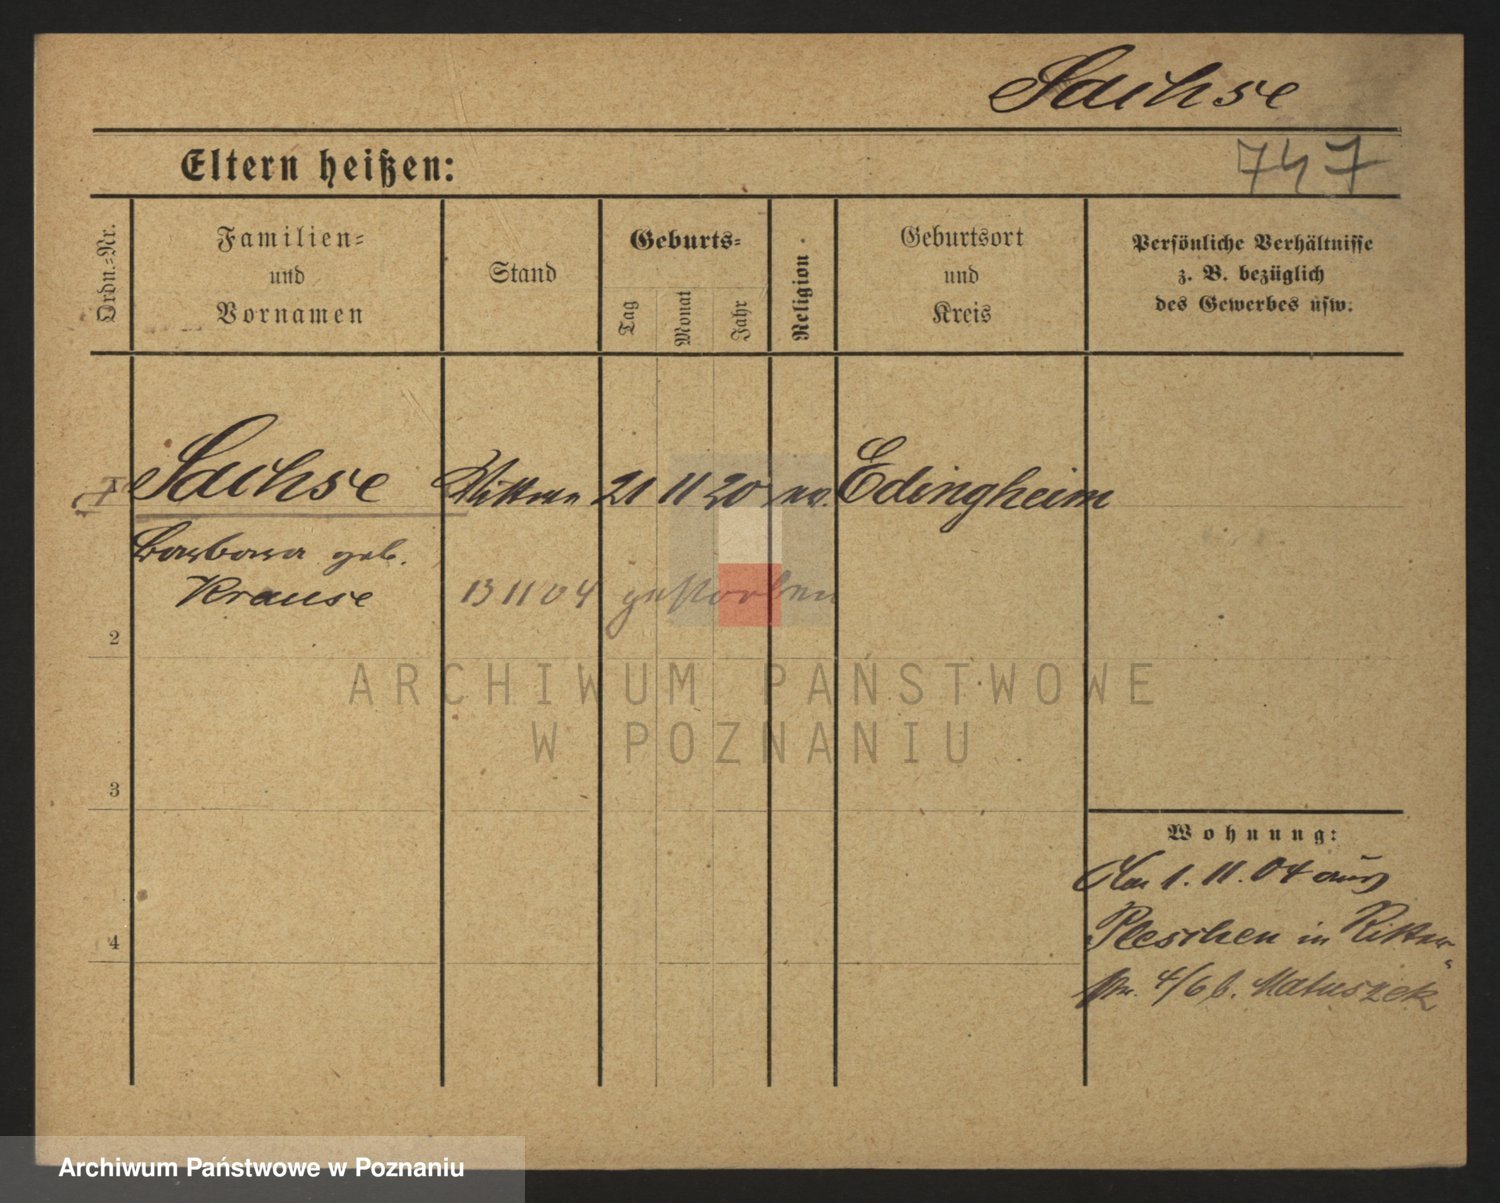 Sachse
747
Eltern heißen:
Ordn.-Nr.
Familien-
und
Vornamen
Stand
Geburts-
Tag
Monat
Jahr
Religion.
Geburtsort
und
Kreis
Persönliche Verhältnisse
z. B. bezüglich
des Gewerbes usw.
1 Sachse Wittwe 21 11 20 ev. Edingheim
Barbara geb.
Krause
13 11 04 gestorben
2
3
4
Wohnung:
Am 1. 11. 04 aus
Pleschen in Ritter-
str. 4/6 b. Matuszek
ARCHIWUM PAŃSTWOWE
W POZNANIU
Archiwum Państwowe w Poznaniu